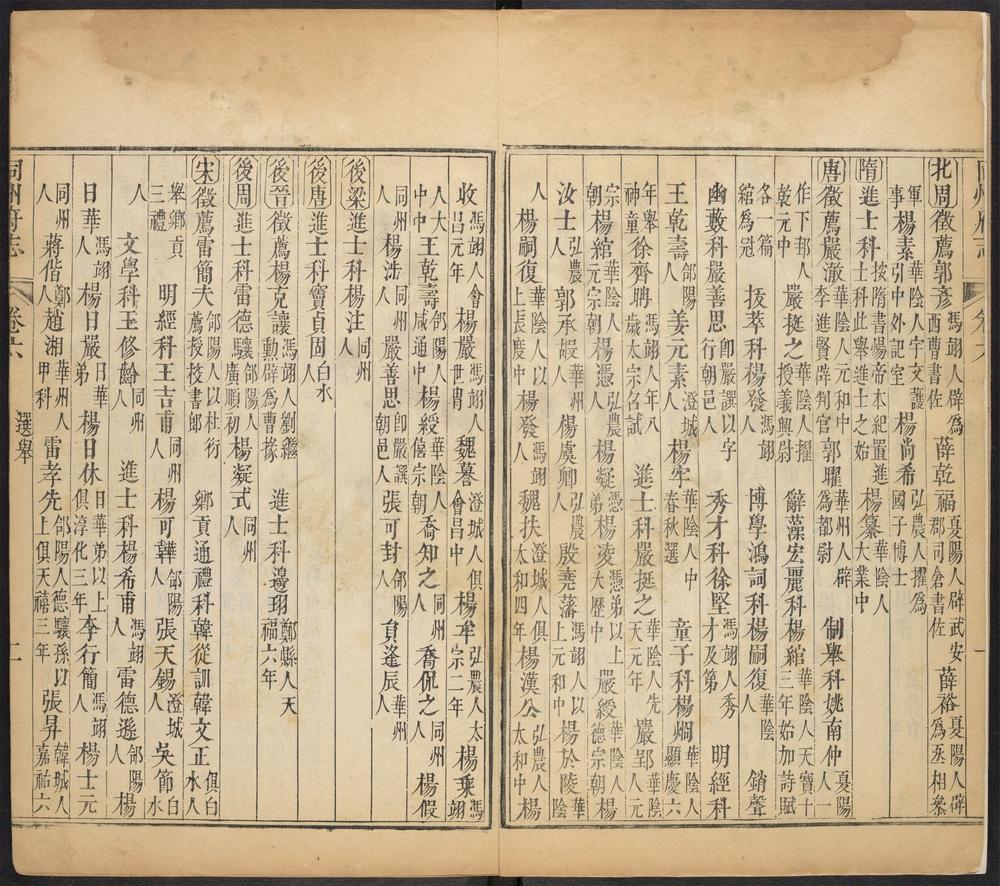 北周徵薦郭彥馮翊人辟爲西曹書佐 薛乾福夏陽人辟武安郡司倉書佐 薛裕夏陽人辟爲丞相叅
軍事 楊素華陰人宇文護引中外記室 楊尚希弘農人擢爲國子博士
隋進士科按隋書楊帝本紀置進士科此舉進士之始 楊纂華陰人大業中
唐徵薦嚴澈華陰人元和中李進賢辟判官 郭曜華州人辟爲都尉 制舉科姚南仲夏陽人一
作下邽人乾元中 嚴挺之華陰人擢授義興尉 辭藻宏麗科楊綰華陰人天寶十三年始加詩賦
各一篇綰爲冠 拔萃科楊發馮翊人 博學鴻詞科楊嗣復華陰人 銷聲
幽藪科嚴善思卽嚴譔以字行朝邑人 秀才科徐堅馮翊人秀才及第 明經科
王乾壽郃陽人 姜元素澄城人 楊牢華陰人中春秋選 童子科楊烱華陰人顯慶六
年舉神童 徐齊聃馮翊人年八歲太宗召試 進士科嚴挺之華陰人先天元年 邵巨華陰人元
宗朝 楊綰華陰人元宗朝 楊憑弘農人 楊凝憑弟 楊凌憑弟以上大歷中 嚴綬華陰人德宗朝 楊
汝士弘農人 郭承嘏華州人 楊虞卿弘農人 殷堯藩馮翊人以上元和中 楊於陵華陰
人 楊嗣復華陰人以上長慶中 楊發馮翊人 魏扶澄城人俱太和四年 楊漢公弘農人太和中 楊
收馮翊人會昌元年 楊嚴馮翊人世冑 魏謩澄城人俱會昌中 楊牢弘農人太宗二年 楊乘馮翊
人大中中 王乾壽郃陽人咸通中 楊綬華陰人僖宗朝 喬知之同州人 喬侃之同州人 楊假
同州人 楊涉同州人 嚴善思卽嚴譔朝邑人 張可封郃陽人 負逢辰華州人
後梁進士科楊注同州人
後唐進士科竇貞固白水人
後晉徵薦楊克讓馮翊人劉繼勳辟爲曹掾 進士科邊珝鄭縣人天福六年
後周進士科雷德驤郃陽人廣順初 楊凝式同州人
宋徵薦雷簡夫郃陽人以杜衍薦授校書郎 鄉貢通禮科韓從訓韓文正俱白水人
舉鄉貢三禮 明經科王吉甫同州人 楊可韡郃陽人 張天錫澄城人 吳節白水
人 文學科王修齡同州人 進士科楊希甫馮翊人 雷德遜郃陽人 楊
日華馮翊人 楊日嚴日華弟 楊日休日華弟以上俱淳化三年 李行簡馮翊人 楊士元
同州人 蔣偕鄭縣人 趙湘華州人甲科 雷孝先郃陽人德驤孫以上俱天禧三年 張昇韓城人嘉祐六
同州府志 卷六 選舉 二